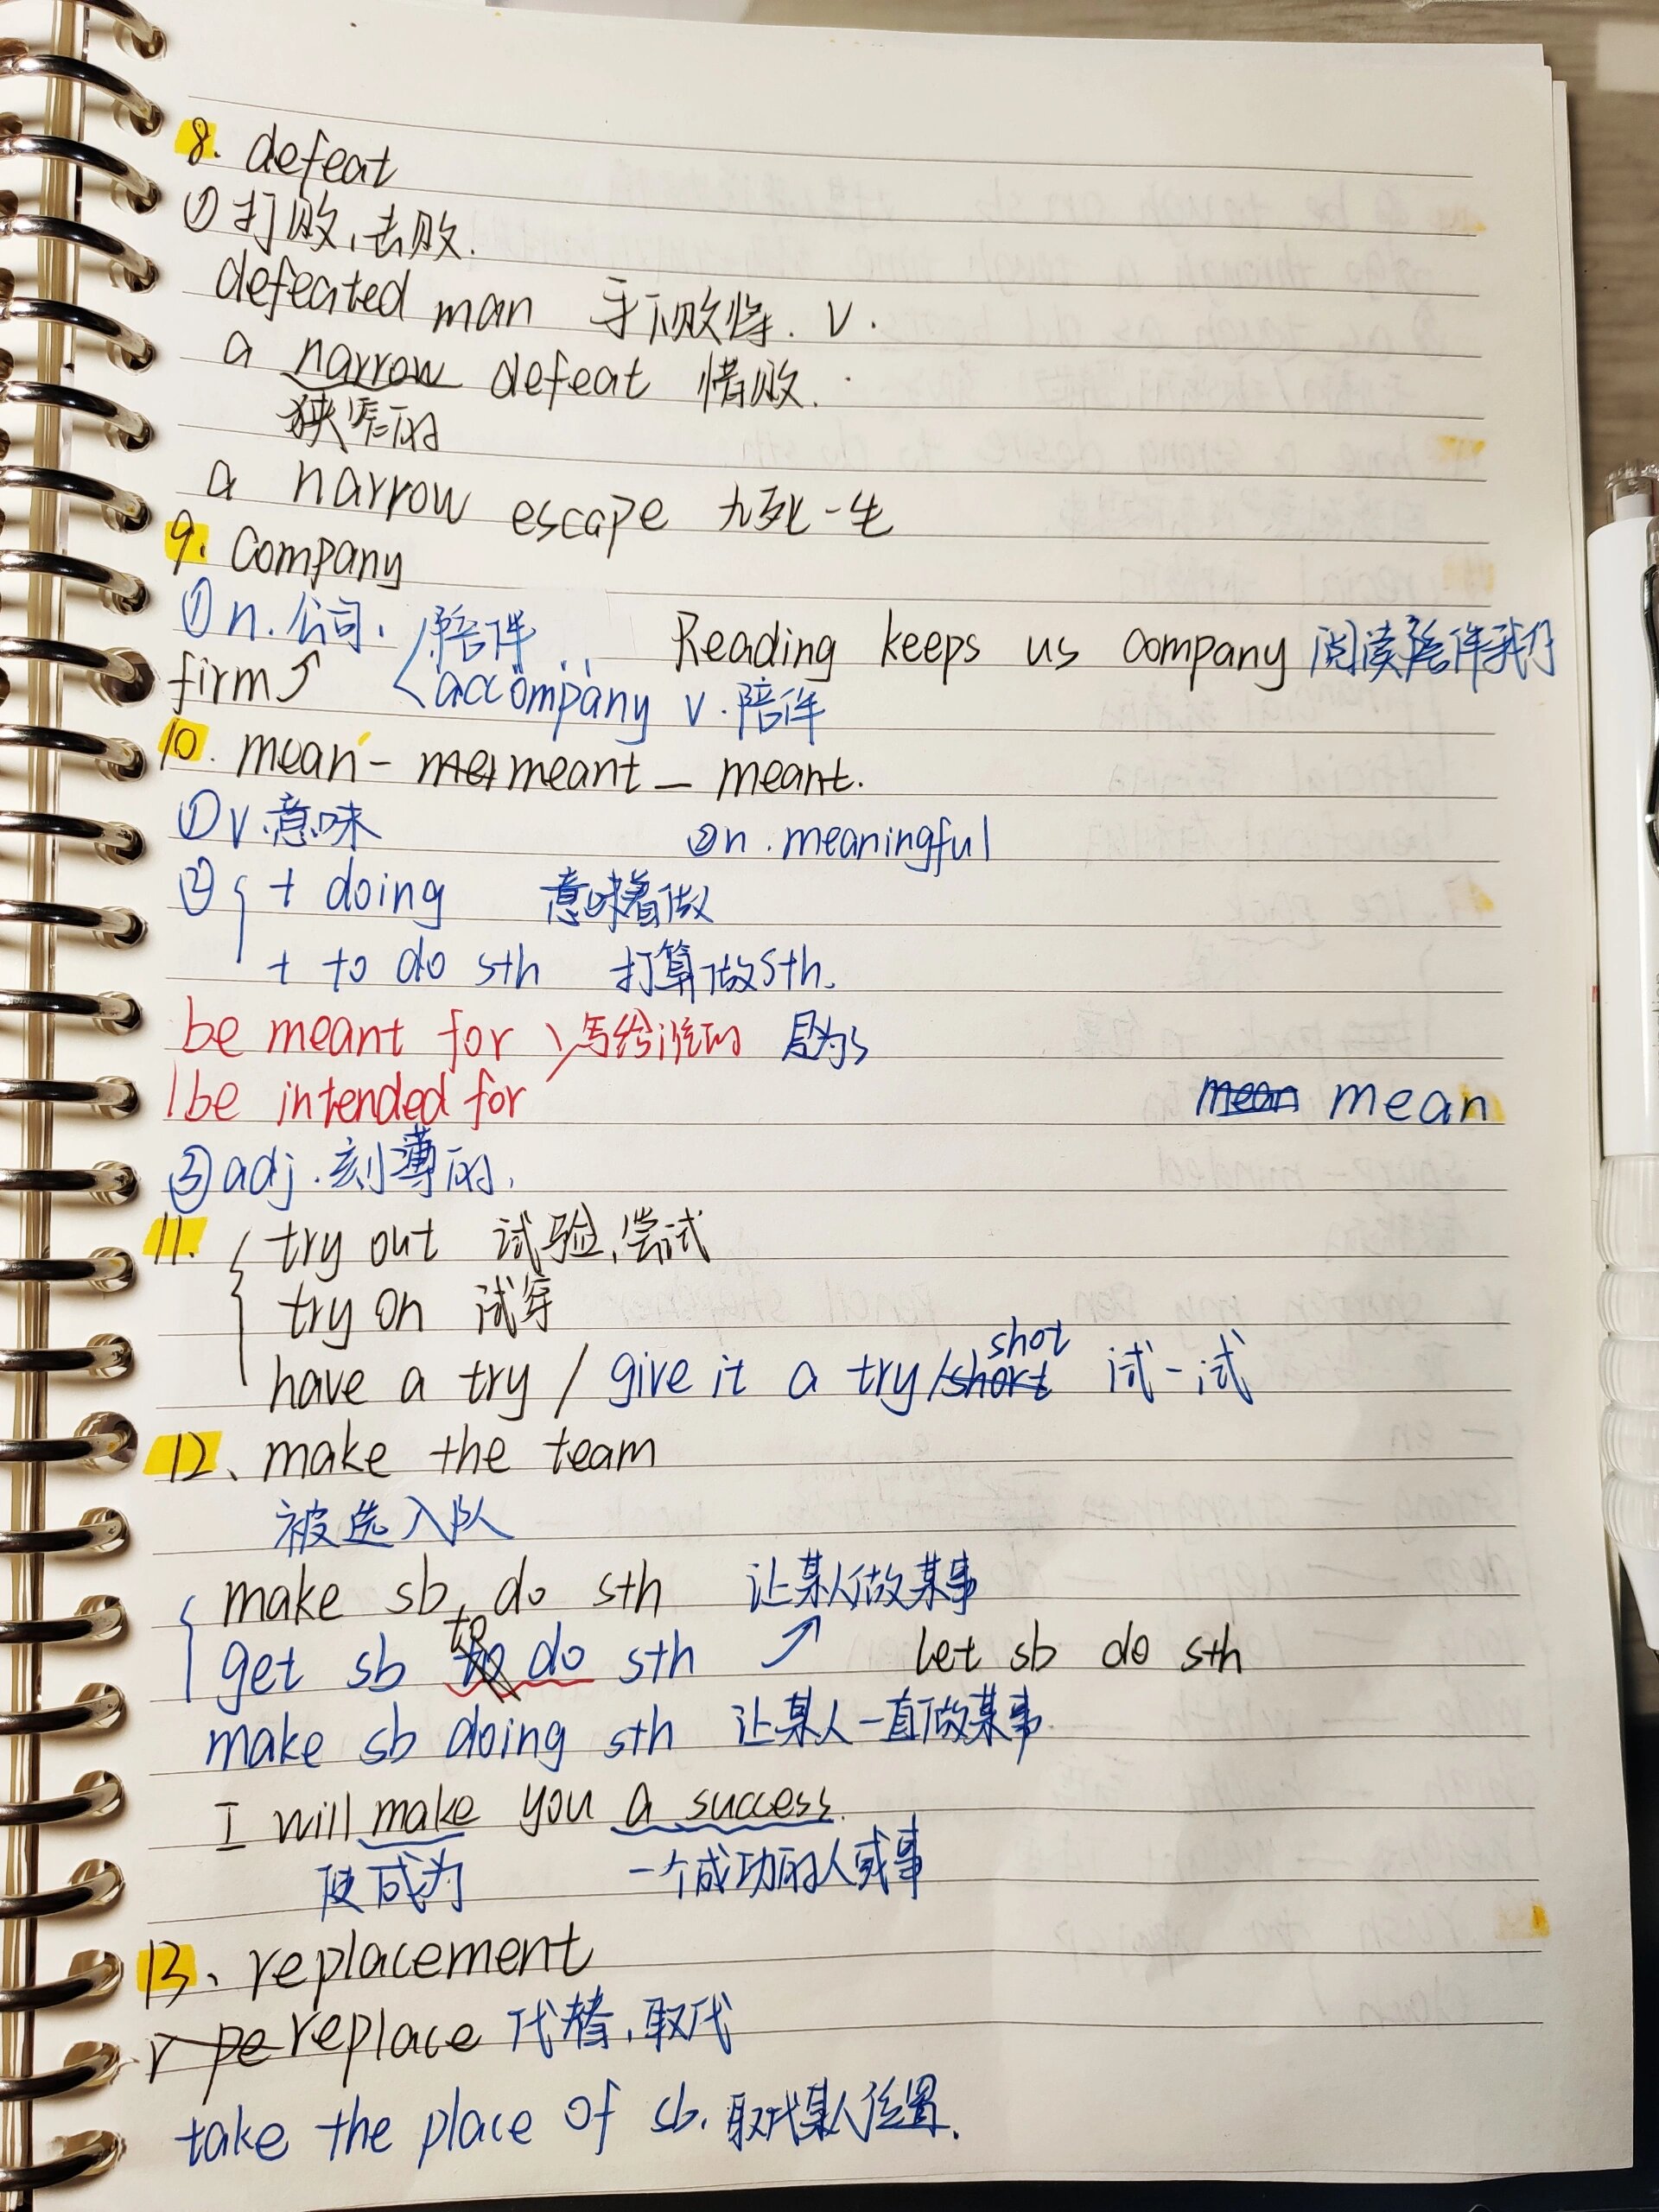 8. defeat
①打败,击败.
defeated man 手下败将. v.
a narrow defeat 惜败.
狭窄的
a narrow escape 九死一生
9. Company
①n.公司. 陪伴 Reading keeps us company 阅读陪伴我们
firm accompany v.陪伴
10. mean - meant - meant.
①v.意味 ②n. meaningful
② + doing 意味着做
+ to do sth 打算做sth.
be meant for 写给谁的
be intended for mean
③adj.刻薄的.
11. try out 试验,尝试
try on 试穿
have a try / give it a try/shot 试一试
12、make the team
被选入队
make sb do sth 让某人做某事
get sb to do sth let sb do sth
make sb doing sth 让某人一直做某事
I will make you a success.
使成为 一个成功的人或事
13、replacement
replace 代替,取代
take the place of sb. 取代某人位置.